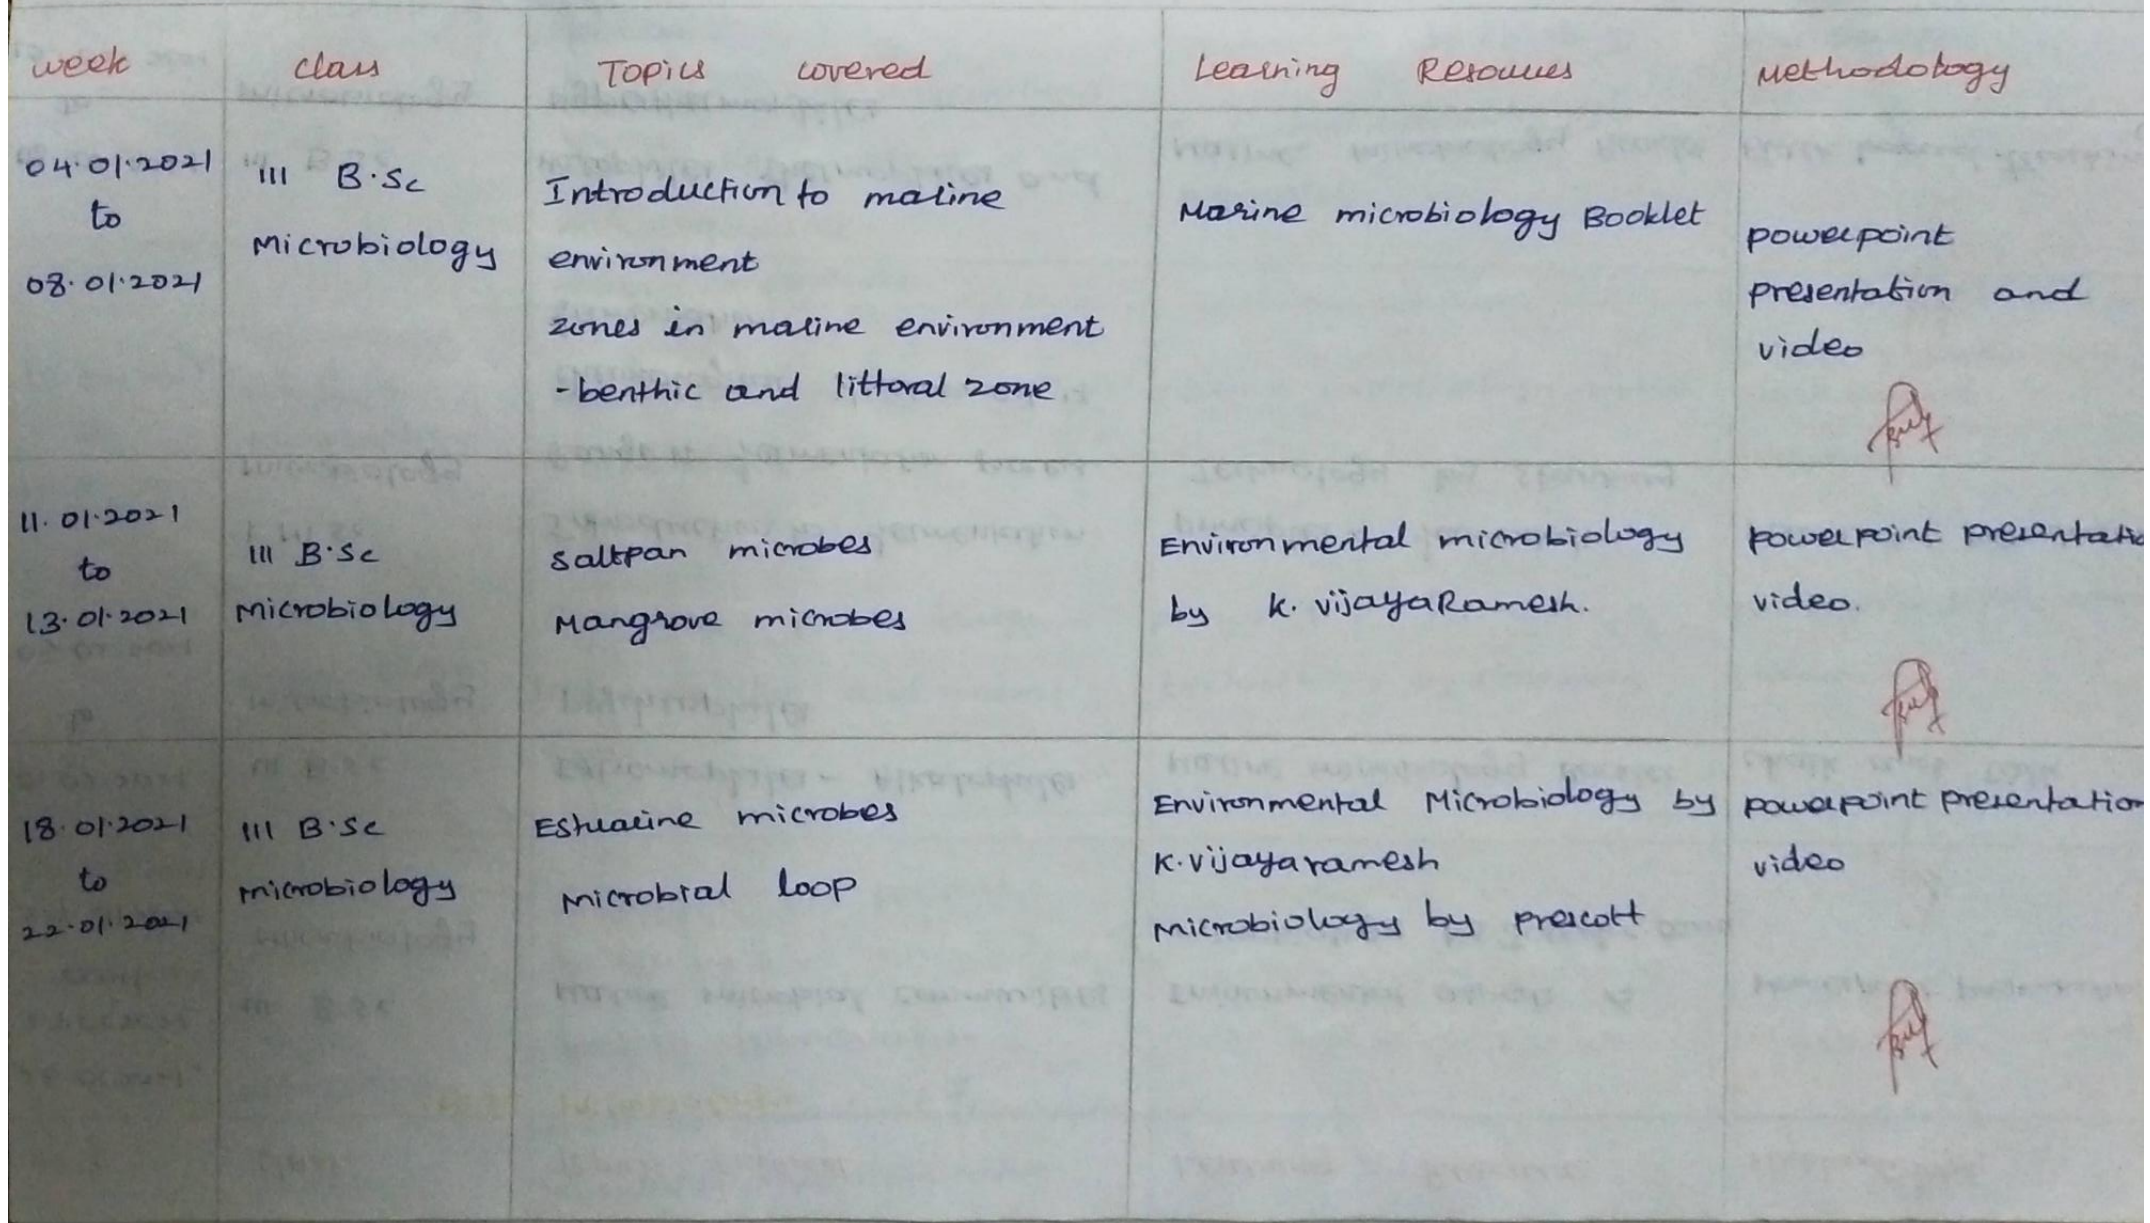 week class Topics covered Learning Resources Methodology
04.01.2021
to
08.01.2021
III B.Sc
Microbiology
Introduction to marine
environment
zones in marine environment
- benthic and littoral zone
Marine microbiology Booklet
powerpoint
presentation and
video
11.01.2021
to
13.01.2021
III B.Sc
Microbiology
saltpan microbes
Mangrove microbes
Environmental microbiology
by K. vijayaRamesh.
powerpoint presentatio
video.
18.01.2021
to
22.01.2021
III B.Sc
microbiology
Estuarine microbes
microbial loop
Environmental Microbiology by
K. vijayaramesh
microbiology by prescott
powerpoint presentation
video